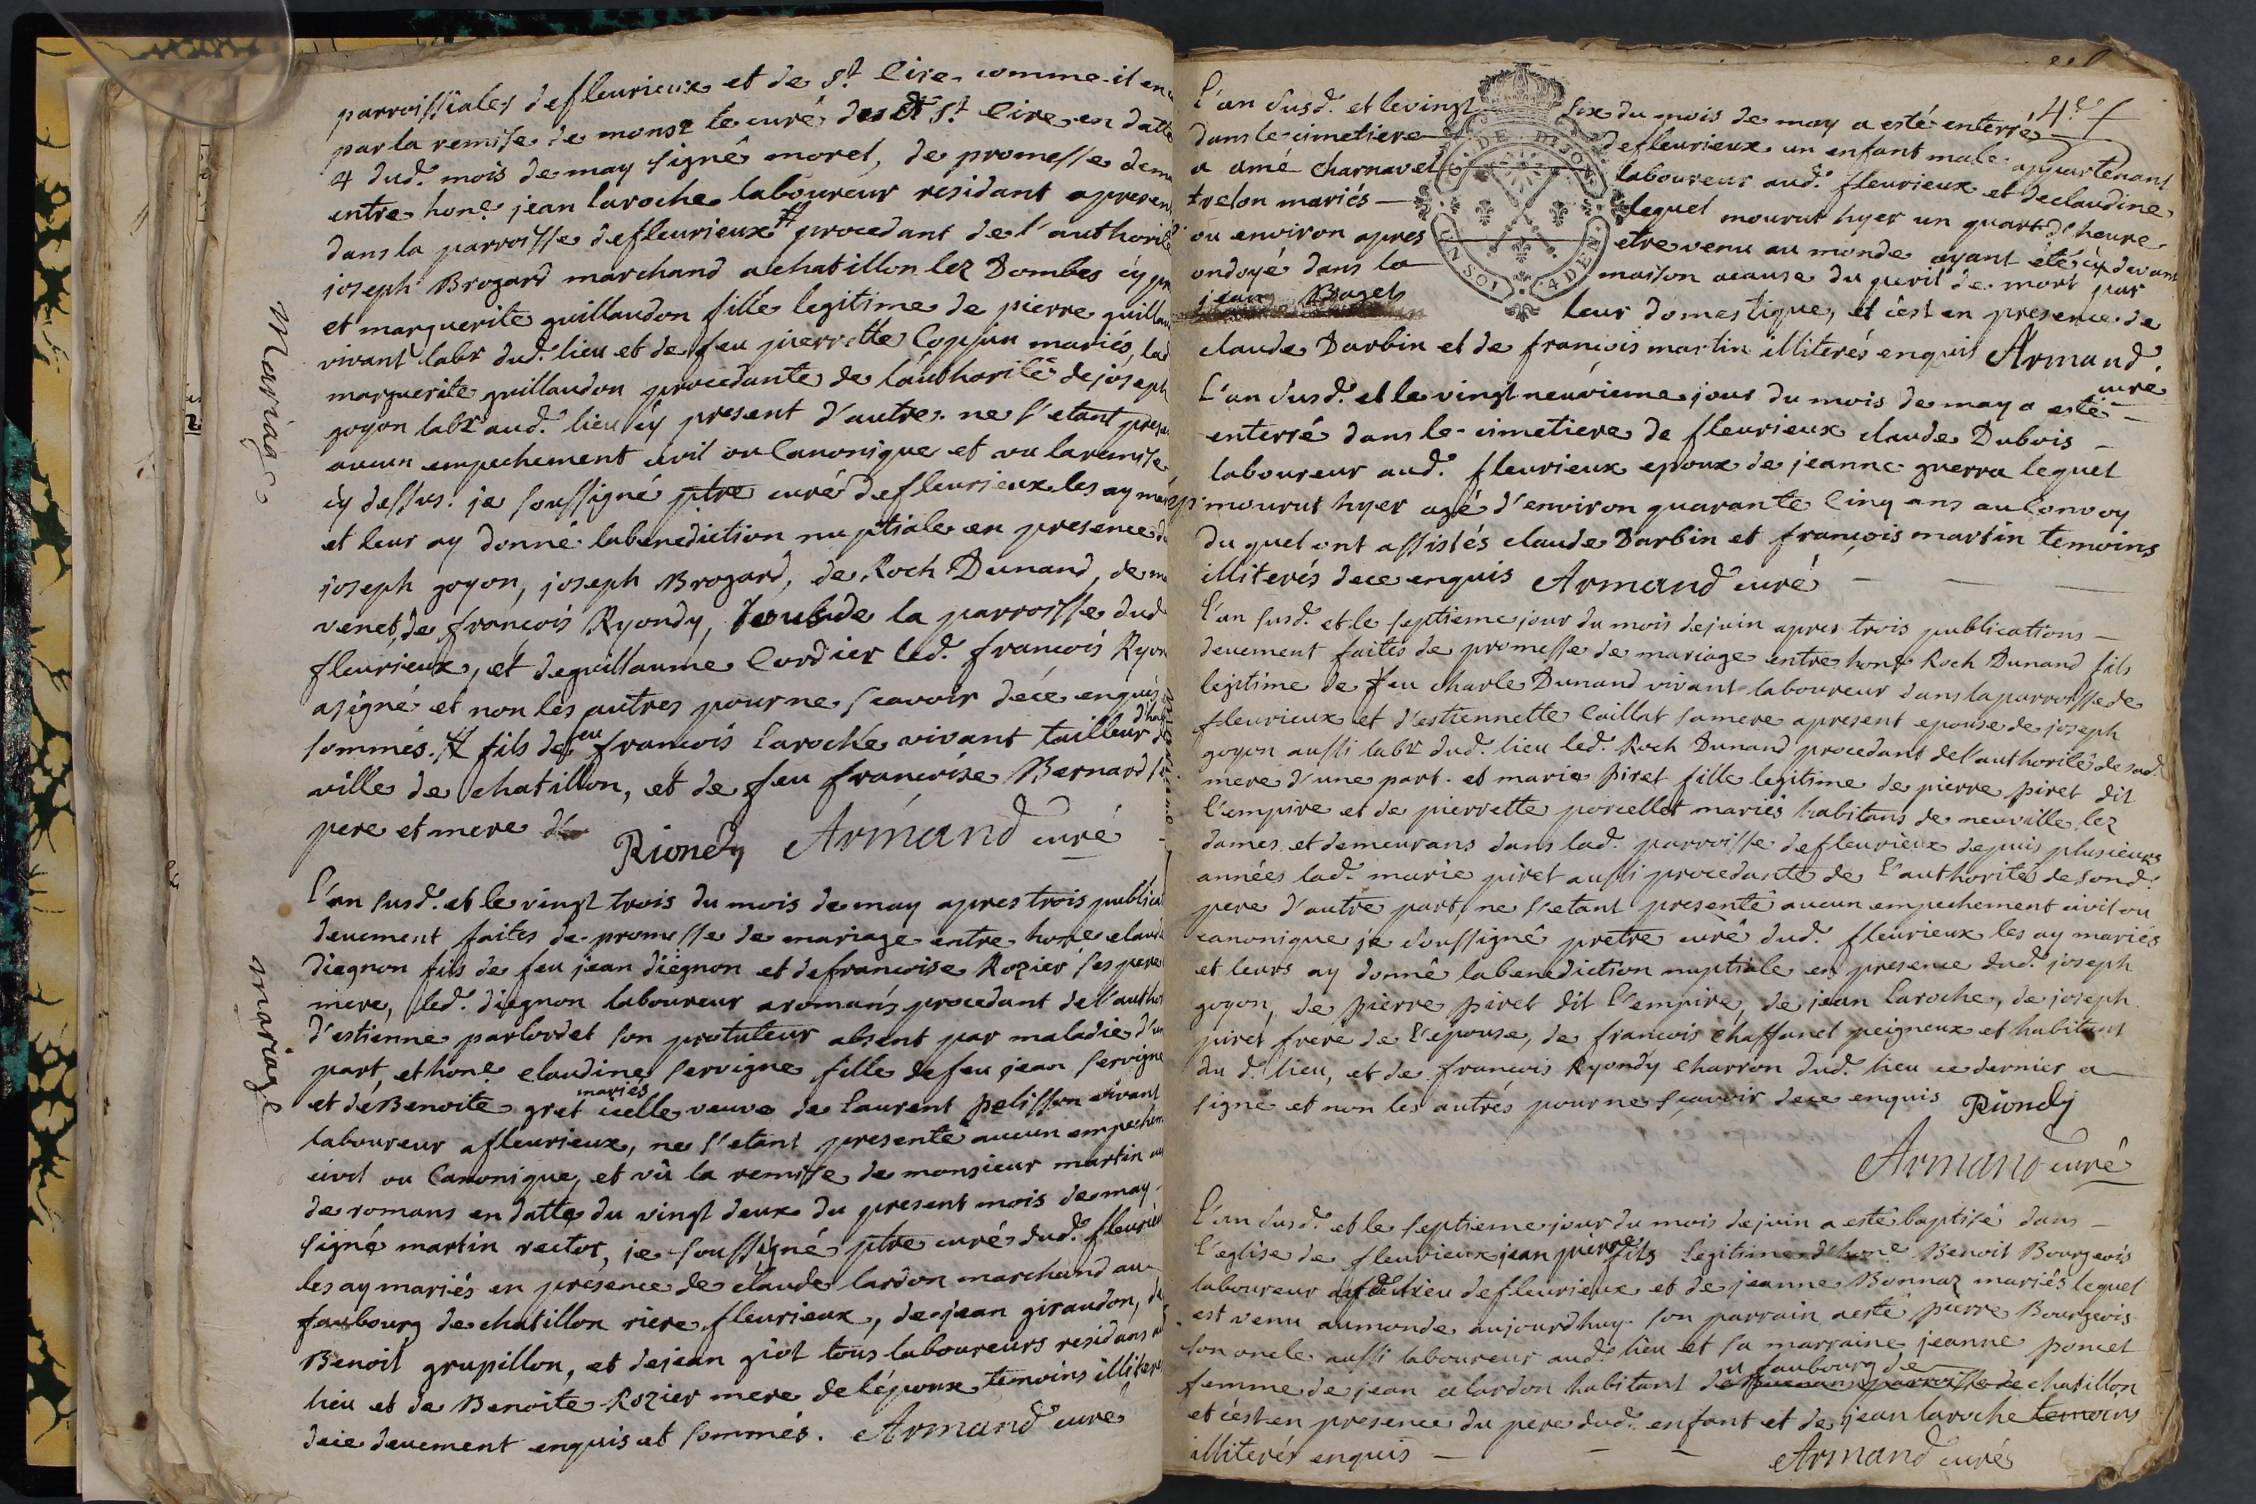 parroissiales de fleurieux et de St Cire comme il en
par la remise de monsr le curé dud St Cire en datte
4 dud. mois de may signé morel, de promesse de
entre hone jean laroche laboureur residant apresent
dans la parroisse de fleurieux # procedant de l'authorité
joseph Brogard marchand a chatillon lez Dombes cy
et marguerite guillaudon fille legitime de pierre
vivant labr dud. lieu et de feu pierrette Coppin mariés, lad
marguerite guillaudon procedante de l'authorité de joseph
goyon labr aud. lieu cy present d'autre. ne s'etant
aucun empechement civil ou Canonique et vu la remise
cy dessus. je soussigné ptre curé de fleurieux les ay
et leur ay donné la benediction nuptiale en presence
joseph goyon, joseph Brogard, de Roch Dunand,
venet, de francois Ryondy, tous de la parroisse dud
fleurieux, et de guillaume Cordier led. francois
a signé et non les autres pour ne scavoir de ce enquis
sommés. # fils de feu francois Laroche vivant tailleur
ville de chatillon, et de feu francoise Bernard
pere et mere
Riondy Armand curé
Mariage
L'an susd. et le vingt trois du mois de may apres trois
deuement faites de promesse de mariage entre hone
diegnon fils de feu jean diegnon et de francoise Rozier ses pere
mere, led. diegnon laboureur a romans procedant de
d'estienne parlordet son protuteur absent par maladie
part, et hone claudine servigne fille de feu jean
et de Benoite gret mariés icelle veuve de Laurent pelisson vivant
laboureur a fleurieux, ne s'etant presenté aucun
civil ou Canonique, et vû la remise de monsieur martin
de romans en datte du vingt deux du present mois de may
signé martin rector, je soussigné ptre curé dud.
les ay mariés en presence de claude lardon marchand au
faubourg de chatillon riere fleurieux, de jean giraudon,
Benoit grupillon, et de jean giot tous laboureurs residans
lieu et de Benoite Rozier mere de l'epoux temoins
de ce deuement enquis et sommés. Armand curé
mariage
4e f
L'an susd. et le vingt six du mois de may a esté enterré
dans le cimetiere de fleurieux un enfant male appartenant
a amé charnavel laboureur aud. fleurieux et de claudine
trelon mariés lequel mourut hyer un quart d'heure
ou environ apres etre venu au monde ayant été cy devant
ondoyé dans la maison a cause du peril de mort par
jean Baget leur domestique, et c'est en presence de
DE DIJON
UN SOL 4 DEN
claude Darbin et de francois martin illiterés enquis Armand
curé
L'an susd. et le vingt neuvieme jour du mois de may a esté
enterré dans le cimetiere de fleurieux claude Dubois
laboureur aud. fleurieux epoux de jeanne guerra lequel
mourut hyer agé d'environ quarante Cinq ans au Convoy
du quel ont assistés claude Darbin et francois martin temoins
illiterés de ce enquis Armand curé
L'an susd. et le septieme jour du mois de juin apres trois publications
deuement faites de promesse de mariage entre hone Roch Dunand fils
legitime de feu charle Dunand vivant laboureur dans la parroisse de
fleurieux et d'estiennette Caillat sa mere apresent epouse de joseph
goyon aussi labr dud. lieu led. Roch Dunand procedant de l'authorité de sad.
mere d'une part. et marie piret fille legitime de pierre piret dit
l'empire et de pierrette porcellet mariés habitans de neuville lez
dames et demeurans dans lad. parroisse de fleurieux depuis plusieurs
années lad. marie piret aussi procedante de l'authorité de sond.
pere d'autre part, ne s'etant presenté aucun empechement civil ou
canonique je soussigné pretre curé dud. fleurieux les ay mariés
et leurs ay donné la benediction nuptiale en presence dud. joseph
goyon, de pierre piret dit l'empire, de jean Laroche, de joseph
piret frere de l'epouse, de francois chaffanet peigneux et habitant
du d. lieu, et de francois Ryondy charron dud. lieu ce dernier a
signé et non les autres pour ne scavoir de ce enquis Riondy
Armand curé
L'an susd. et le septieme jour du mois de juin a esté baptisé dans
l'eglise de fleurieux jean pierre fils legitime d'hone Benoit Bourgeois
laboureur lieu de fleurieux et de jeanne Bonnaz mariés lequel
est venu au monde aujourdhuy. son parrain a esté pierre Bourgeois
son oncle aussi laboureur aud. lieu et sa marraine jeanne poncet
femme de jean alardon habitant du faubourg de chatillon
et c'est en presence du pere dud. enfant et de jean laroche temoins
illiterés enquis
Armand curé